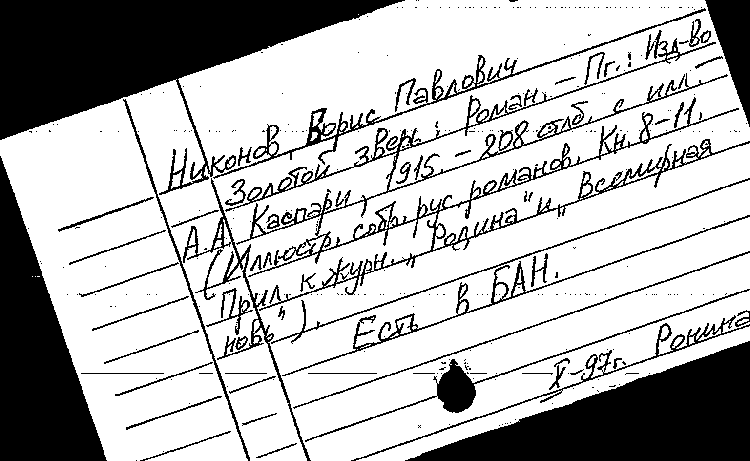 Никонов, Борис Павлович
Золотой зверь: Роман. – Пг.: Изд-во
А.А. Каспари, 1915. – 208 стлб. с илл. –
(Иллюстр. собр. рус. романов. Кн. 8-11.
Прил. к журн. „Родина" и „Всемирная
новь").
Есть в БАН.
X-97г. Ронина